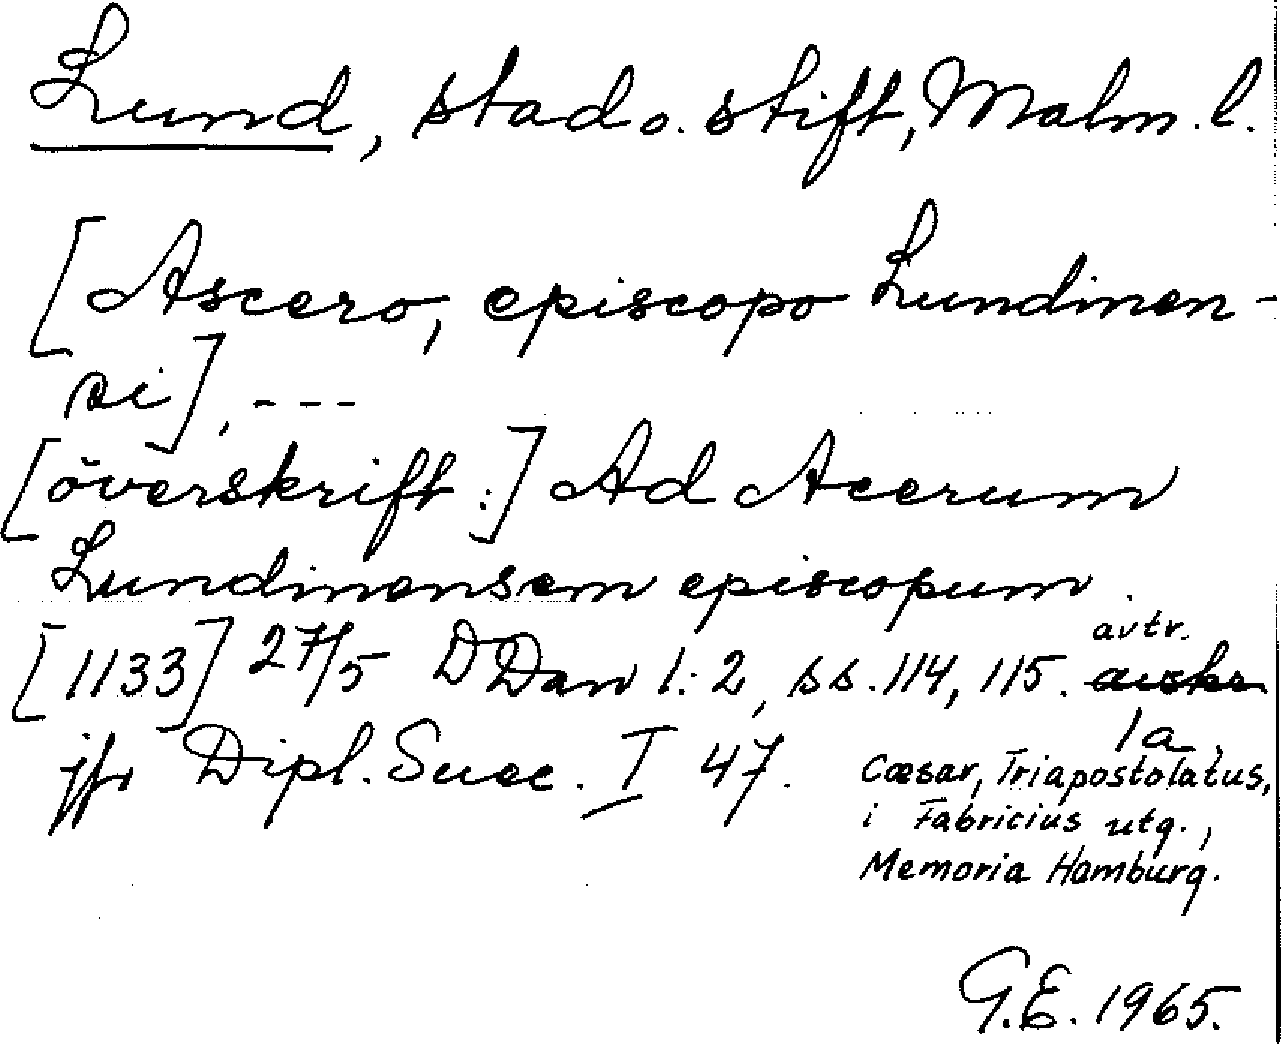 Lund, stad o. stift, Malm. l.
[Ascero, episcopo Lundinen-
si], ---
[överskrift:] Ad Acerum
Lundinensem episcopum.
[1133] 27/5 DDan 1:2, ss. 114, 115. avtr.
jfr Dipl. Suec. I 47. 1a,
Cæsar, Triapostolatus,
i Fabricius utg.,
Memoria Hamburg.
G.E. 1965.